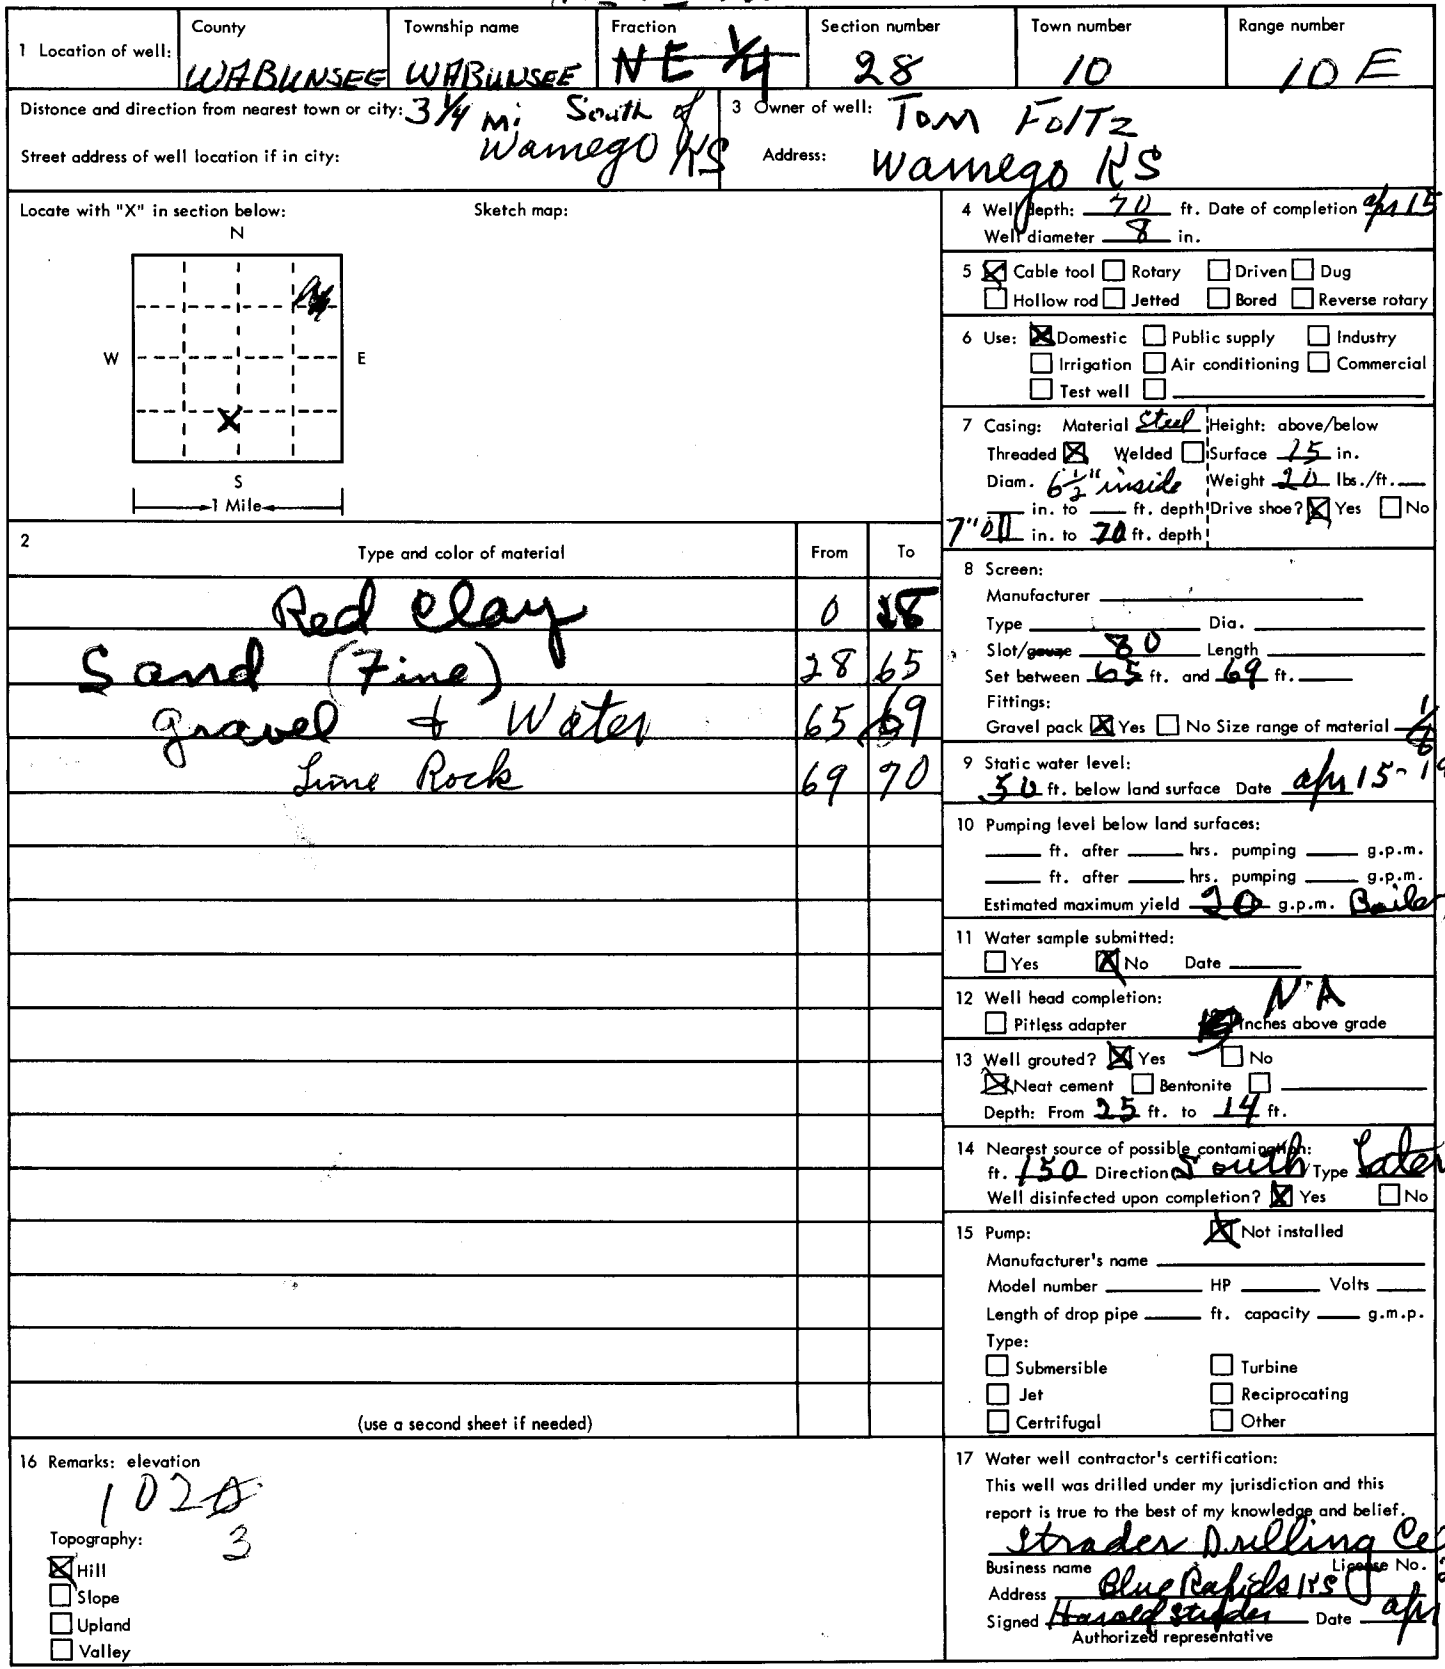 County Township name Fraction Section number Town number Range number
1 Location of well: WABUNSEE WABUNSEE NE 1/4 28 10 10 E
Distonce and direction from nearest town or city: 3 1/4 mi South of
Wamego KS
Street address of well location if in city:
3 Owner of well: Tom Foltz
Address: Wamego KS
Locate with "X" in section below: Sketch map:
N
W E
X
S
1 Mile
2 Type and color of material From To
Red Clay 0 28
Sand (Fine) 28 65
gravel & Water 65 69
Lime Rock 69 70
(use a second sheet if needed)
4 Well depth: 70 ft. Date of completion apr 15
Well diameter 8 in.
5 Cable tool Rotary Driven Dug
Hollow rod Jetted Bored Reverse rotary
6 Use: Domestic Public supply Industry
Irrigation Air conditioning Commercial
Test well
7 Casing: Material Steel Height: above/below
Threaded Welded Surface 15 in.
Diam. 6 1/2" inside Weight 20 lbs./ft.
in. to ft. depth Drive shoe? Yes No
7" O in. to 70 ft. depth
8 Screen:
Manufacturer
Type Dia.
Slot/gauze 80 Length
Set between 65 ft. and 69 ft.
Fittings:
Gravel pack Yes No Size range of material
9 Static water level:
50 ft. below land surface Date apr 15-19
10 Pumping level below land surfaces:
ft. after hrs. pumping g.p.m.
ft. after hrs. pumping g.p.m.
Estimated maximum yield 20 g.p.m. Bailer
11 Water sample submitted:
Yes No Date
12 Well head completion: N-A
Pitless adapter Inches above grade
13 Well grouted? Yes No
Neat cement Bentonite
Depth: From 25 ft. to 14 ft.
14 Nearest source of possible contamination:
ft. 150 Direction South Type Later
Well disinfected upon completion? Yes No
15 Pump: Not installed
Manufacturer's name
Model number HP Volts
Length of drop pipe ft. capacity g.m.p.
Type:
Submersible Turbine
Jet Reciprocating
Certrifugal Other
16 Remarks: elevation
1020
3
Topography:
Hill
Slope
Upland
Valley
17 Water well contractor's certification:
This well was drilled under my jurisdiction and this
report is true to the best of my knowledge and belief.
Strader Drilling Co
Business name License No.
Address Blue Rapids KS
Signed Harold Strader Date apr
Authorized representative